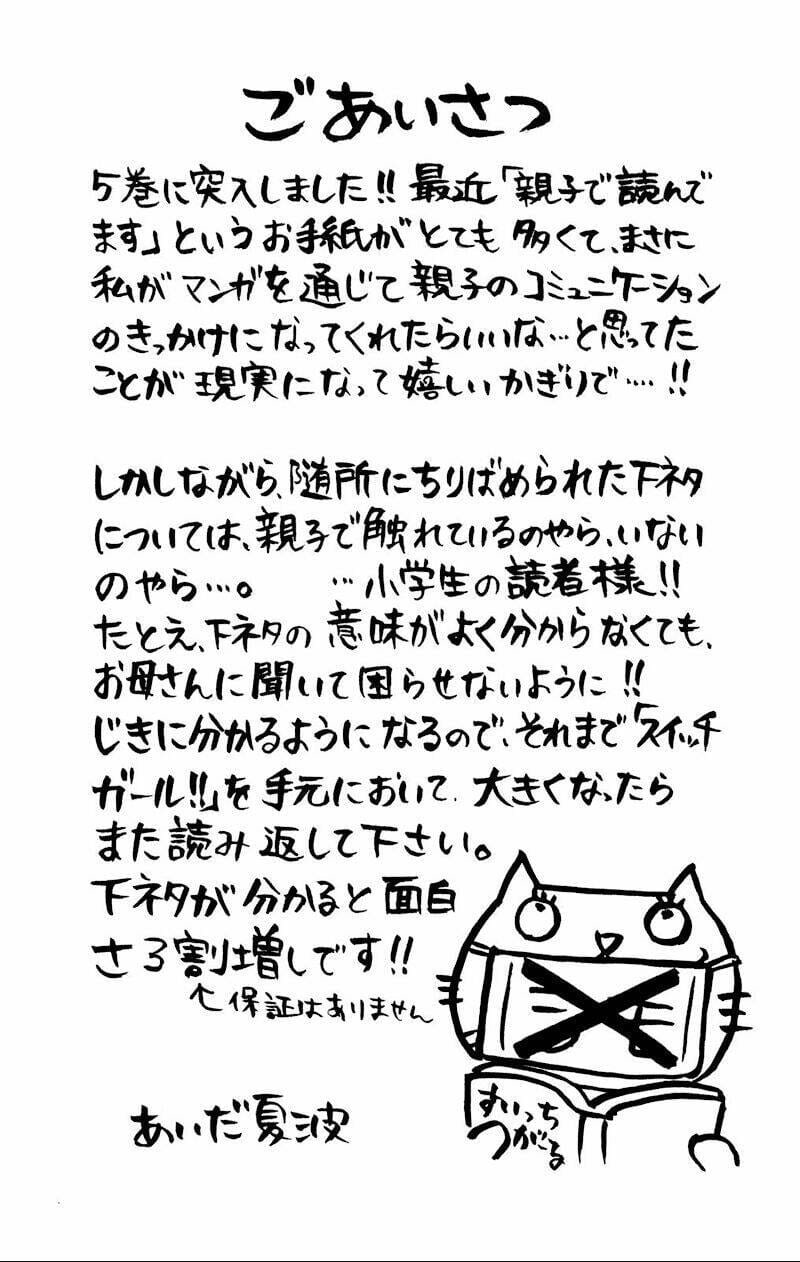 ごあいさつ
5巻に突入しました!! 最近「親子で読んで
ます」というお手紙がとても多くて、まさに
私がマンガを通じて親子のコミュニケーション
のきっかけになってくれたらいいな…と思ってた
ことが現実になって嬉しいかぎりで…!!
しかしながら、随所にちりばめられた下ネタ
については、親子で触れているのやら、いない
のやら…。 …小学生の読者様!!
たとえ、下ネタの意味がよく分からなくても、
お母さんに聞いて困らせないように!!
じきに分かるようになるので、それまで「スイッチ
ガール!!」を手元において、大きくなったら
また読み返して下さい。
下ネタが分かると面白
さ3割増しです!!
↑保証はありません
あいだ夏波
すいっち
つがある